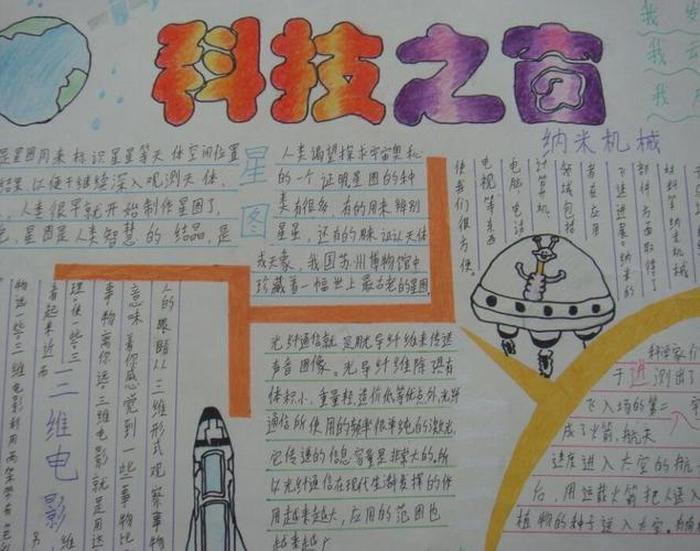 科技之窗
我
我
我
是星图用来标识星星等天体空间位置
结果以便于继续深入观测天体
人类很早就开始制作星图了
星图是人类智慧的结晶,是
星图
人类渴望探求宇宙奥秘
的一个证明星图的种
类有很多,有的用来辨别
星星,还有的用来证认天体
或天象,我国苏州博物馆中
珍藏着一幅世上最古老的星图
纳米机械
材料等纳米机械
部件方面取得了
飞速进展。纳米的
者在应用
领域包括
计算机
电脑电话
电视等东西
使我们很方便。
三维电影
人的眼睛以三维形式观察事物
意味着你感觉到一些事物比
事物离你远。三维电影就是用这
理使一些三
看起来近而
物远一些。三维电影利用两架带有色
光纤通信就是用光导纤维来传送
声音图像。光导纤维除具有
体积小、重量轻、造价低等优点外,光导
通信所使用的频率很单纯的激光,
它传送的信息容量是非常大的。所
以光纤通信在现代生活中发挥的作
用越来越大,应用的范围也
越来越广
科学家们
于进测出了
飞入场的第二
成了火箭,航天
速度进入太空的航
后,用运载火箭把人送入
植物的种子送入太空。